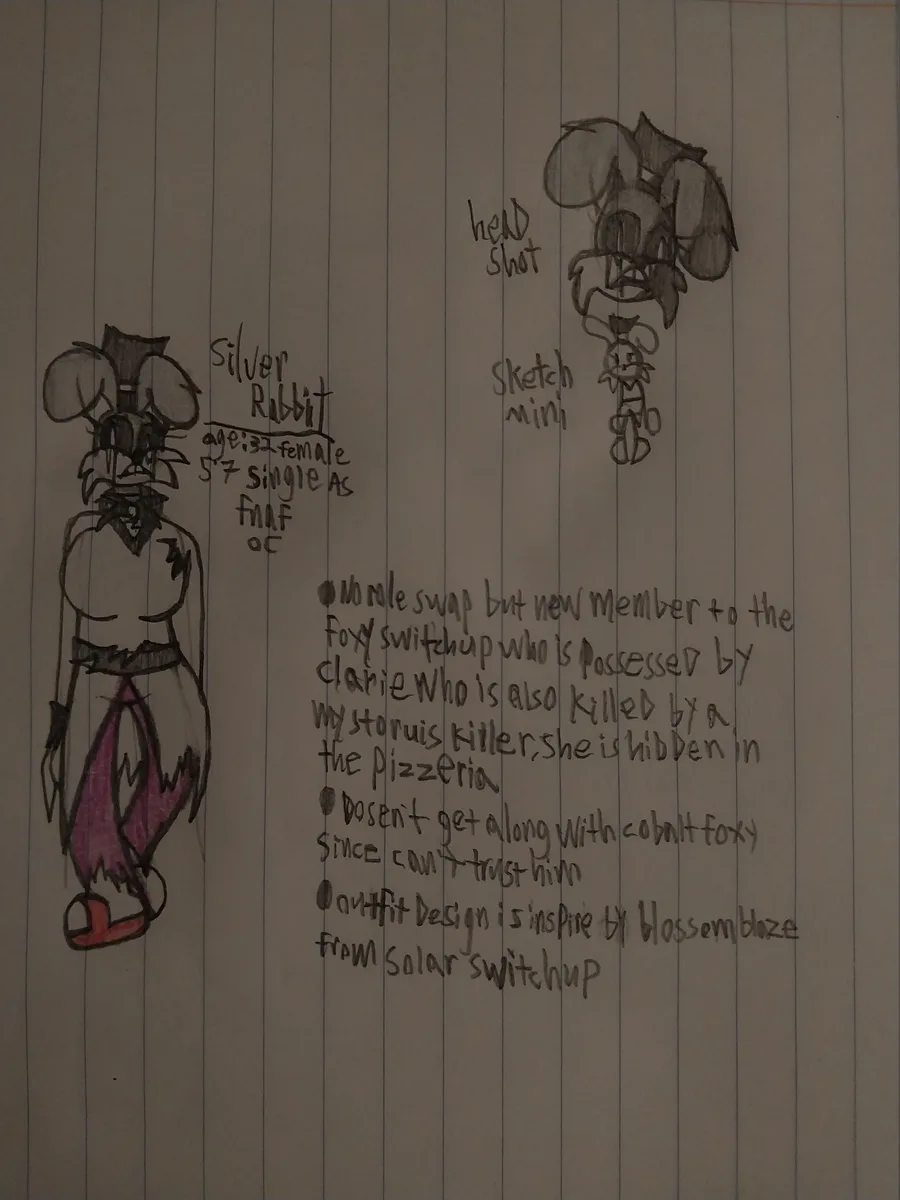 head
shot
sketch
mini
silver
Rabbit
age:32 female
5'7 single As
fnaf
oc
No role swap but new member to the
foxy switchup who is possessed by
clarie who is also killed by a
mystoruis killer, she is hidden in
the pizzeria
Dosen't get along with cobalt foxy
since can't trust him
outfit Design is inspire by blossemblaze
from solar switchup